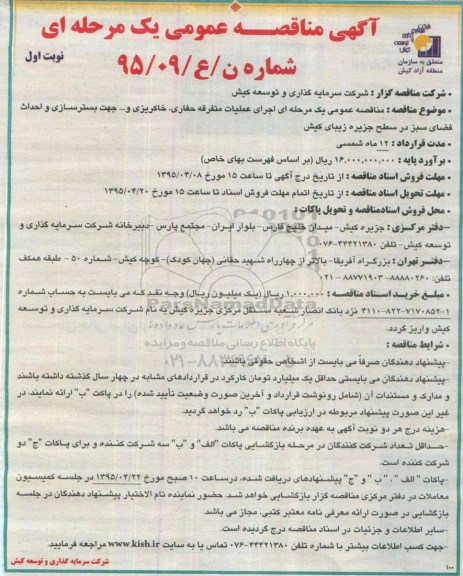 آگهی مناقصـه عمومی یک مرحله ای
شماره ن/ع/۹۵/۰۹
نوبت اول
متعلق به سازمان
منطقه آزاد کیش
• شرکت مناقصه گزار : شرکت سرمایه گذاری و توسعه کیش
• موضوع مناقصه : مناقصه عمومی یک مرحله ای اجرای عملیات متفرقه حفاری، خاکریزی و... جهت بسترسازی و احداث
فضای سبز در سطح جزیره زیبای کیش
• مدت قرارداد : ۱۲ ماه شمسی
• برآورد پایه : ۱۶,۰۰۰,۰۰۰,۰۰۰ ریال (بر اساس فهرست بهای خاص)
• مهلت فروش اسناد مناقصه : از تاریخ درج آگهی تا ساعت ۱۵ مورخ ۱۳۹۵/۰۴/۰۸
• مهلت تحویل اسناد مناقصه : از تاریخ اتمام مهلت فروش اسناد تا ساعت ۱۵ مورخ ۱۳۹۵/۰۴/۲۰
• محل فروش اسنادمناقصه و تحویل پاکات:
-دفتر مرکزی : جزیره کیش- میدان خلیج فارس- بلوار ایران- مجتمع پارس -دبیرخانه شرکت سرمایه گذاری و
توسعه کیش- تلفن ۴۴۴۲۱۳۸۰-۰۷۶
-دفتر تهران : بزرگراه آفریقا- بالاتر از چهارراه شهید حقانی (جهان کودک)- کوچه کیش- شماره ۵۰ - طبقه همکف
تلفن: ۸۸۸۸۰۲۶۰- ۸۸۷۷۱۹۰۳- ۰۲۱
• مبلغ خرید اسناد مناقصه : ۱,۰۰۰,۰۰۰ ریال (یک میلیون ریال) وجه نقد که می بایست به حساب شماره
۳۱۱۰-۸۲۲-۷۱۷۰۸۵۲-۱ نزد بانک انصار شعبه مستقل مرکزی جزیره کیش به نام شرکت سرمایه گذاری و توسعه
کیش واریز گردد.
• شرایط مناقصه :
-پیشنهاد دهندگان صرفاً می بایست از اشخاص حقوقی باشند
-پیشنهاد دهندگان می بایستی حداقل یک میلیارد تومان کارکرد در قراردادهای مشابه در چهار سال گذشته داشته باشند
و مدارک و مستندات آن (شامل رونوشت قرارداد و آخرین صورت وضعیت تأیید شده) را در پاکت "ب" ارائه نمایند، در
غیر این صورت پیشنهاد مربوطه در ارزیابی پاکات "ب" رد خواهد گردید.
-هزینه درج هر دو نوبت آگهی به عهده برنده مناقصه می باشد.
-حداقل تعداد شرکت کنندگان در مرحله بازگشایی پاکات "الف" و "ب" سه شرکت کننده و برای پاکات "ج" دو
شرکت کننده است.
-پاکات " الف " ، " ب " و "ج" پیشنهادهای دریافت شده، درساعت ۱۰ صبح مورخ ۱۳۹۵/۰۴/۲۲ در جلسه کمیسیون
معاملات در دفتر مرکزی مناقصه گزار بازگشایی خواهد شد. حضور نماینده تام الاختیار پیشنهاد دهندگان در جلسه
بازگشایی در صورت ارائه معرفی نامه معتبر کتبی، مجاز می باشد.
-سایر اطلاعات و جزئیات در اسناد مناقصه درج گردیده است.
-جهت کسب اطلاعات بیشتر با شماره تلفن ۴۴۴۲۱۳۸۰-۰۷۶ تماس یا به سایت www.kish.ir مراجعه فرمایید.
شرکت سرمایه گذاری و توسعه کیش
۱۰۰
ParsNamadData
پایگاه اطلاع رسانی مناقصه و مزایده